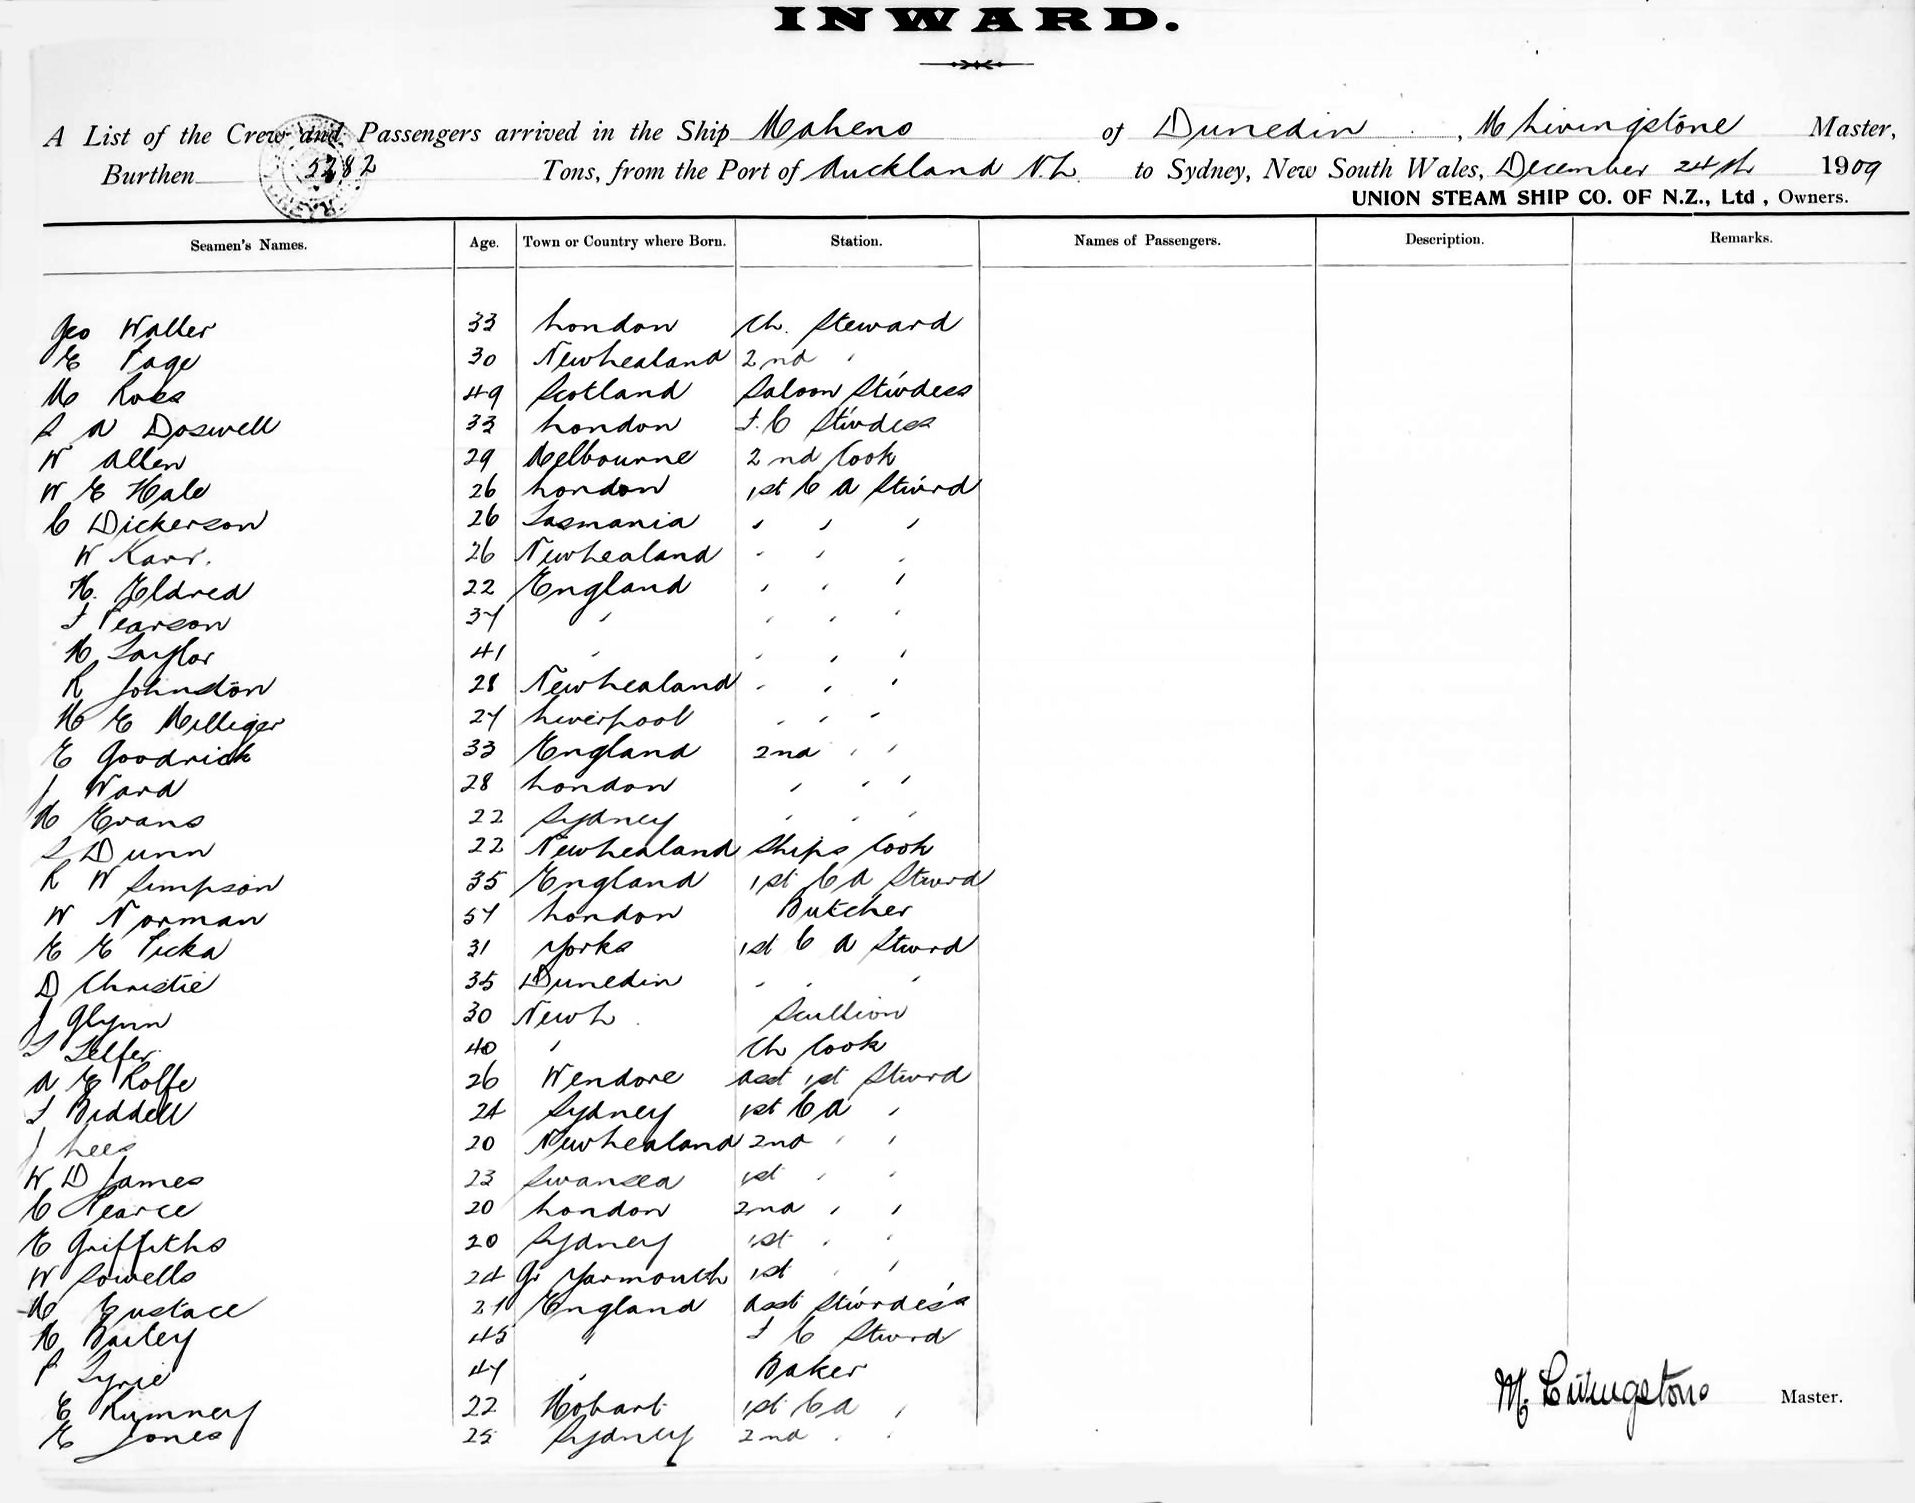 INWARD.
A List of the Crew and Passengers arrived in the Ship Maheno of Dunedin, M Livingstone Master,
Burthen 5282 Tons, from the Port of Auckland N.Z. to Sydney, New South Wales, December 24th 1909
UNION STEAM SHIP CO. OF N.Z., Ltd , Owners.
Seamen's Names. Age. Town or Country where Born. Station. Names of Passengers. Description. Remarks.
Geo Waller 33 London Ch. Steward
E Page 30 New Zealand 2nd "
M Ross 49 Scotland Saloon Stwdess
S A Doswell 33 London F.C Stwdess
W Allen 29 Melbourne 2nd Cook
W E Hale 26 London 1st C A Stward
C Dickerson 26 Tasmania " " "
W Karr. 26 New Zealand " " "
H. Eldred 22 England " " "
F Pearson 37 " " " "
H Taylor 41 " " " "
R Johnston 28 New Zealand " " "
H E Milliger 27 Liverpool " " "
E Goodrick 33 England 2nd " "
J Ward 28 London " " "
H Evans 22 Sydney " " "
S Dunn 22 New Zealand Ships Cook
R W Simpson 35 England 1st C A Stwrd
W Norman 57 London Butcher
E E Ticka 31 Yorks 1st C A Stwrd
D Christie 35 Dunedin " " "
J Glynn 30 New Z Scullion
T Telfer 40 " Ch Cook
A E Rolfe 26 Wendore Asst 1st Stwrd
T Biddell 24 Sydney 1st C A "
J Lees 20 New Zealand 2nd " "
W D James 23 Swansea 1st " "
C Pearce 20 London 2nd " "
E Griffiths 20 Sydney 1st " "
W Sowells 24 Gr Yarmouth 1st " "
M Eustace 27 England Asst Stwrdess
H Bailey 45 " F C Stwrd
P Tyrie 47 " Baker
E Rumney 22 Hobart 1st C A "
E Jones 25 Sydney 2nd " "
M. Livingstone Master.